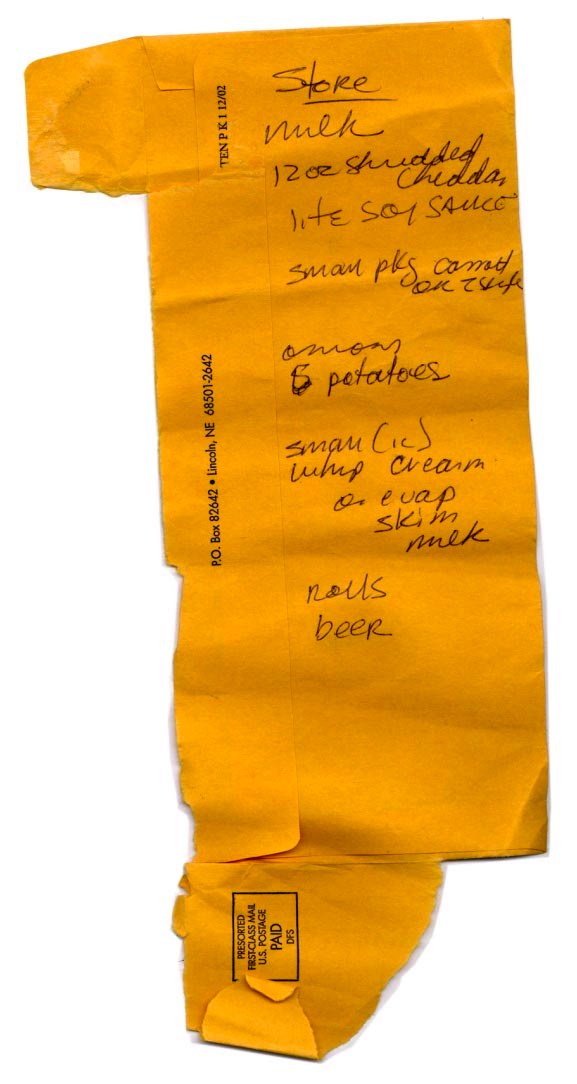 Store
milk
12 oz shredded
Cheddar
lite SOY SAUCE
small pkg carrots
OR
onions
5 potatoes
small (1c)
whip cream
or evap
skim
milk
rolls
beer
TEN P K 1 12/02
P.O. Box 82642 • Lincoln, NE 68501-2642
PRESORTED
FIRST-CLASS MAIL
U.S. POSTAGE
PAID
DFS